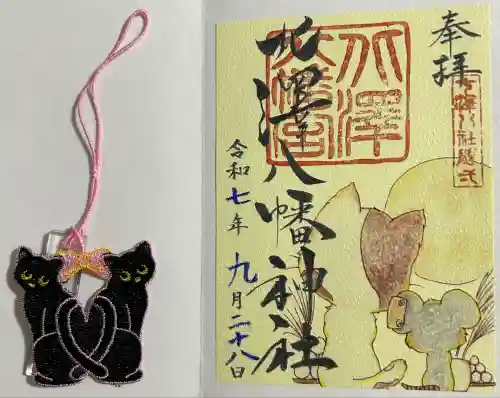 奉拝
北澤八幡神社
北澤
八幡宮
令和七年
九月二十八日